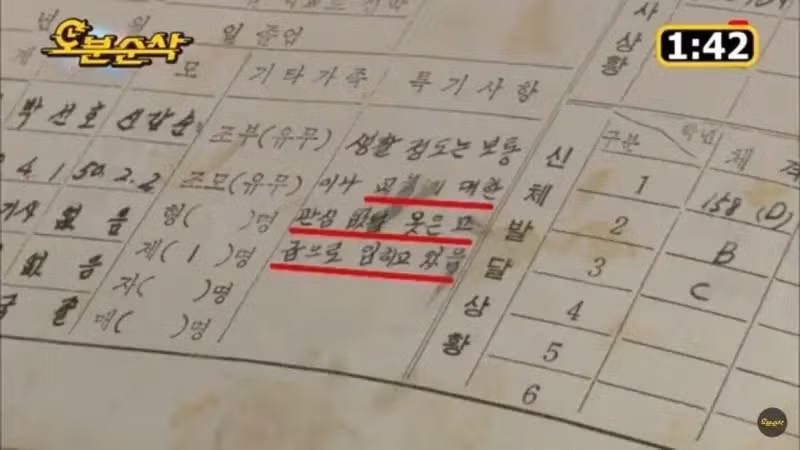 오분순삭
1:42
년 의
일 졸업
사 상 황
모 기타가족 특기사항
박선호 신갑순 조부(유무) 생활 정도는 보통
4.1 50.2.2 조모(유무) 이나 대한
없음 형( )명 관심 옷은 고
없음 제( 1 )명 급으로 입히고 있음
자( )명
매( )명
신체발달상황
구분 학년 체격
1 158 (D)
2 B
3 C
4
5
6
오분순삭